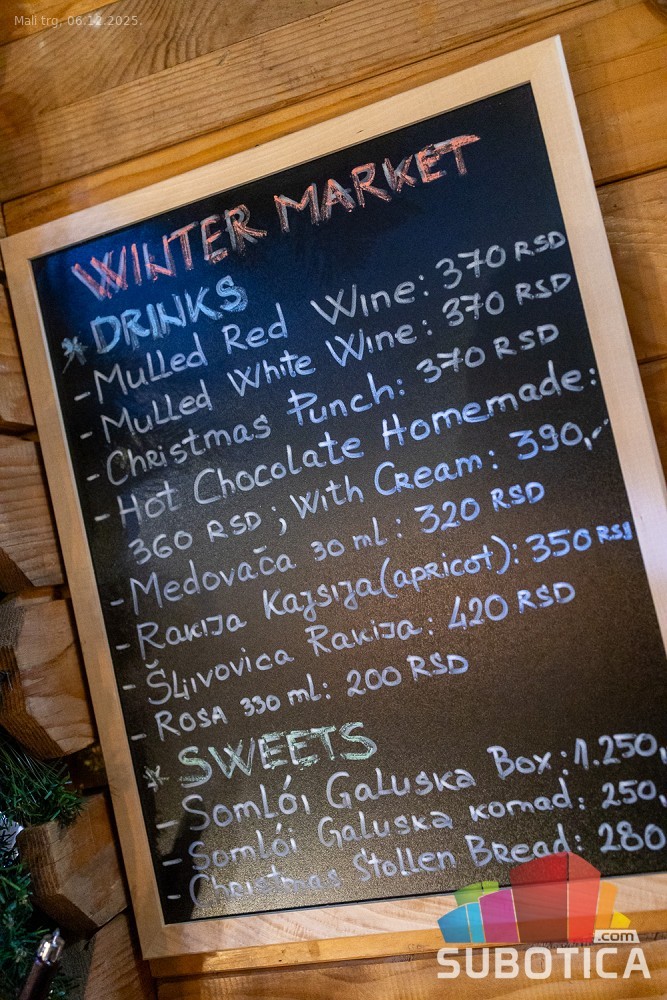 Mali trg, 06.12.2025.
WINTER MARKET
* DRINKS
- Mulled Red Wine: 370 RSD
- Mulled White Wine: 370 RSD
- Christmas Punch: 370 RSD
- Hot Chocolate Homemade:
360 RSD ; With Cream: 390,-
- Medovača 30 ml: 320 RSD
- Rakija Kajsija (apricot): 350 RSD
- Šljivovica Rakija: 420 RSD
- Rosa 330 ml: 200 RSD
* SWEETS
- Somlói Galuska Box: 1.250,
- Somlói Galuska komad: 250,
- Christmas Stollen Bread: 280
.com
SUBOTICA